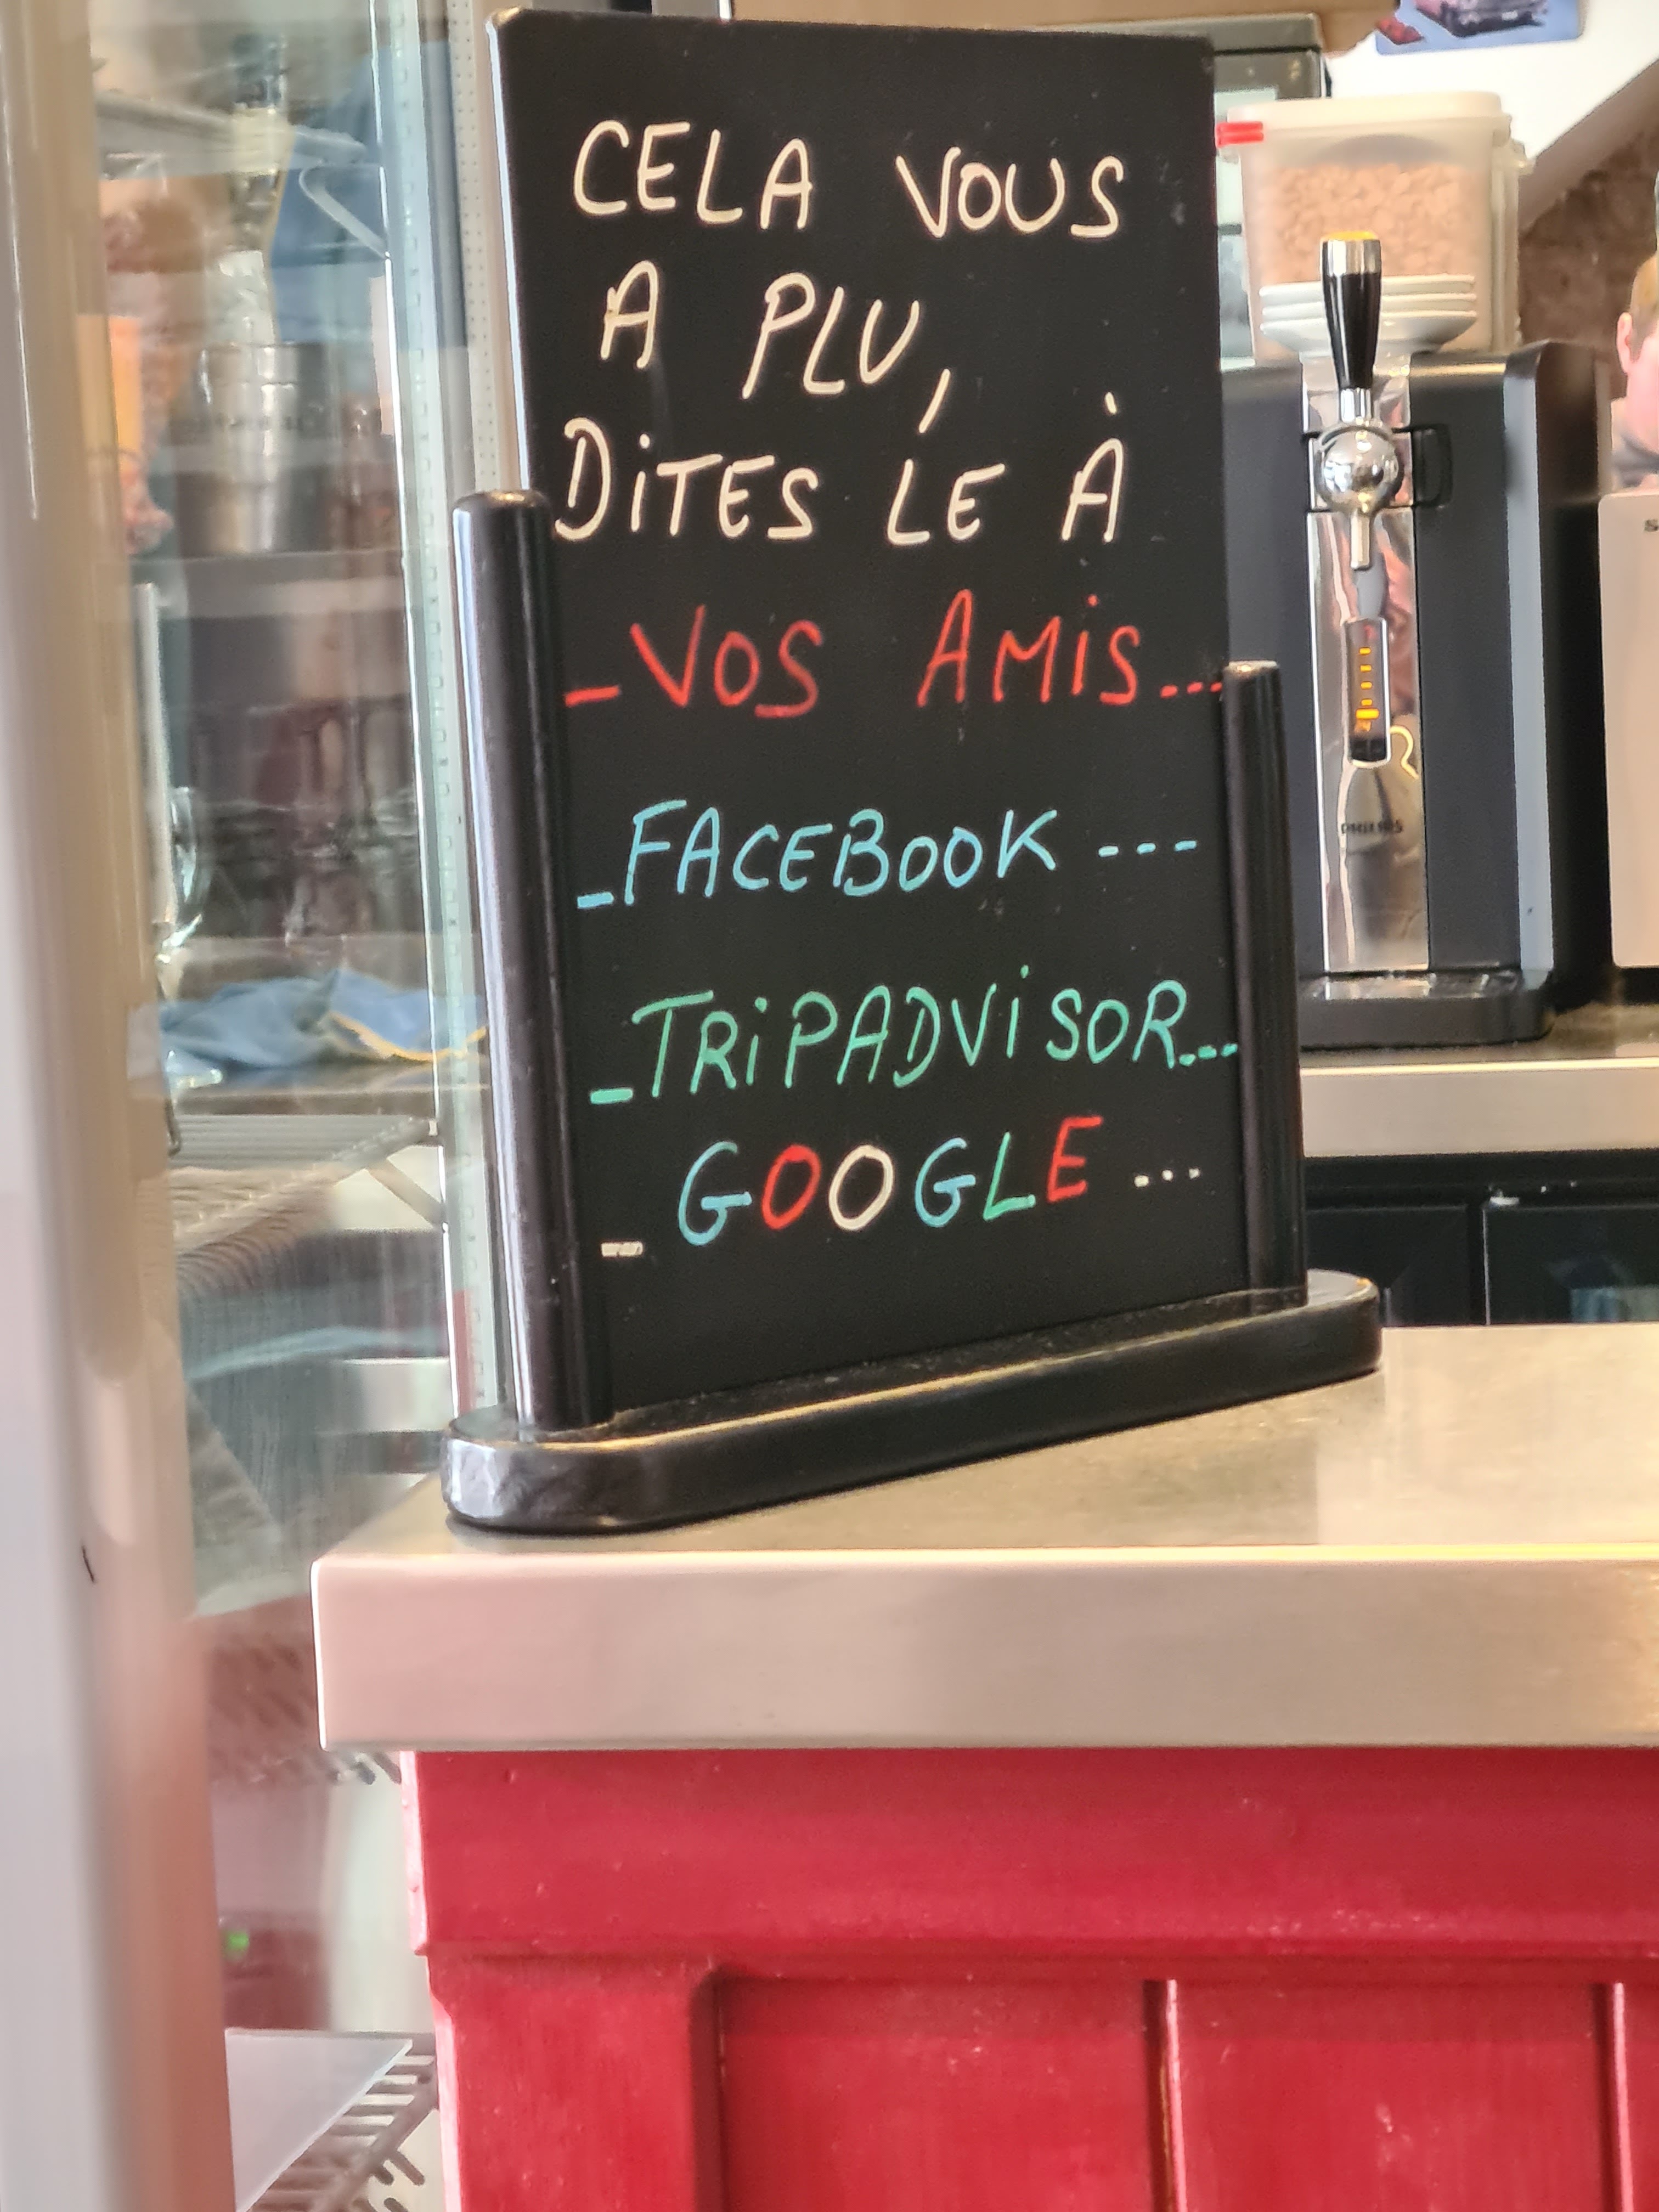 CELA VOUS
A PLU,
DiTES LE À
_VOS AMiS...
_FACEBOOK ---
_TRiPADViSOR...
_ GOOGLE ...
PHILIPS